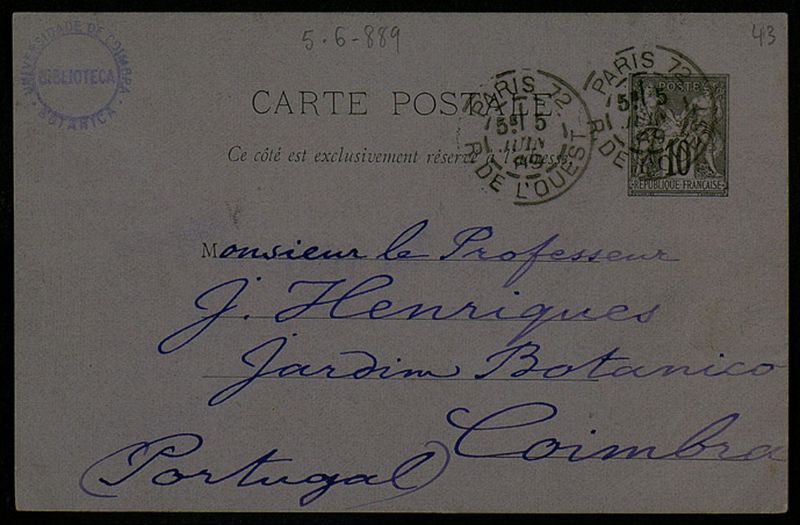 5-6-889
43
UNIVERSIDADE DE COIMBRA
BIBLIOTECA
BOTANICA
CARTE POSTALE
Ce côté est exclusivement réservé à l'adresse
PARIS 72
5E 5
JUIN
89
R DE L'OUEST
PARIS 72
5E 5
JUIN
89
R DE L'OUEST
POSTES
10
REPUBLIQUE FRANÇAISE
Monsieur le Professeur
J. Henriques
Jardim Botanico
Coimbra
(Portugal)